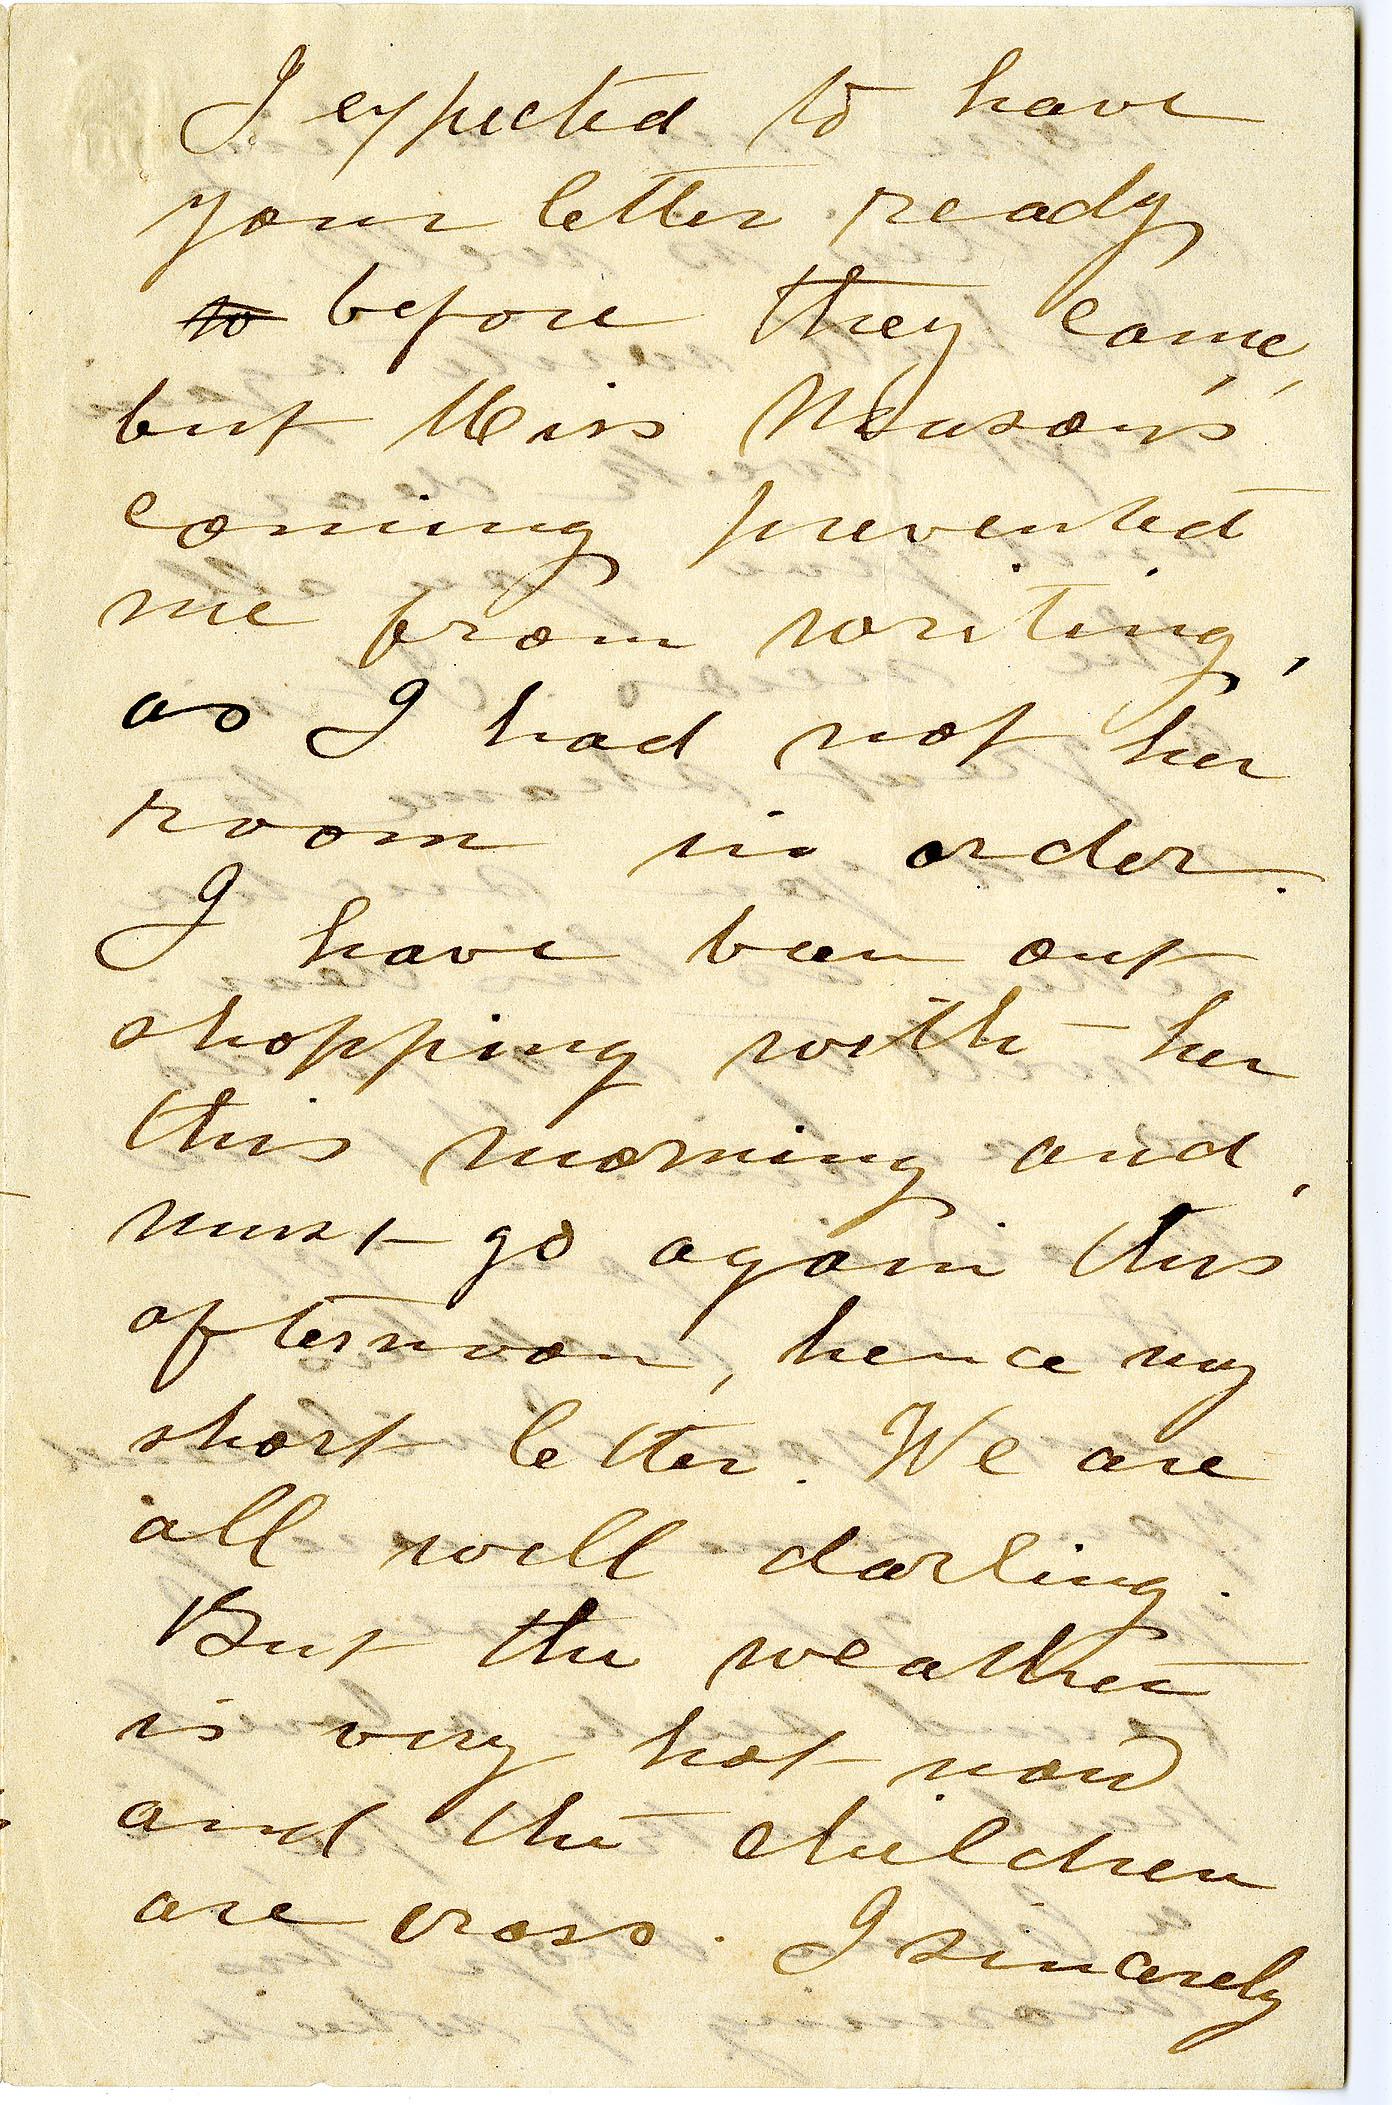 I expected to have
your letter ready
~~to~~ before they came,
but Miss Mason's
coming prevented
me from writing,
as I had not her
room in order.
I have been out
shopping with her
this morning and,
must go again this
afternoon, hence my
short letter. We are
all well darling.
But the weather
is very hot now
and the children
are cross. I sincerely